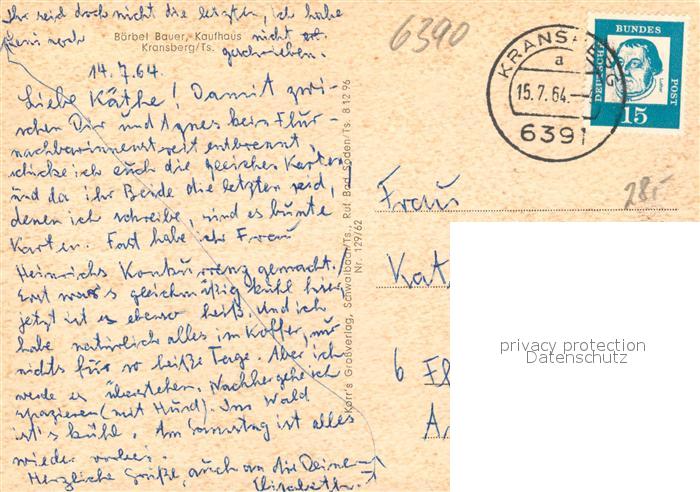 Ihr seid doch nicht die letzten, ich habe
noch nicht
geschrieben.
Bärbel Bauer, Kaufhaus
Kransberg/Ts.
14.7.64.
Liebe Käthe! Damit zwi-
schen Dir und Agnes kein Flur-
nachbarinnenstreit entbrennt,
schicke ich euch die gleichen Karten
und da ihr Beide die letzten seid,
denen ich schreibe, sind es bunte
Karten. Fast habe ich Frau
Heinrichs Konkurrenz gemacht!
Erst war's gleichmäßig kühl hier
jetzt ist es ebenso heiß. Und ich
habe natürlich alles im Koffer, nur
nichts für so heiße Tage. Aber ich
werde es überstehen. Nachher gehe ich
spazieren (mit Hund). Im Wald
ist's kühl. Am Samstag ist alles
wieder vorbei.
Herzliche Grüße, auch an die Deine
Elisabeth.
Körr's Großverlag, Schwalbach/Ts., Ruf Bad Soden/Ts. 8 12 96
Nr. 129/62
6390
KRANSBERG
a
15.7.64.
6391
DEUTSCHE
BUNDES
POST
Luther
15
28,-
Frau
Kat
6 F
A
privacy protection
Datenschutz